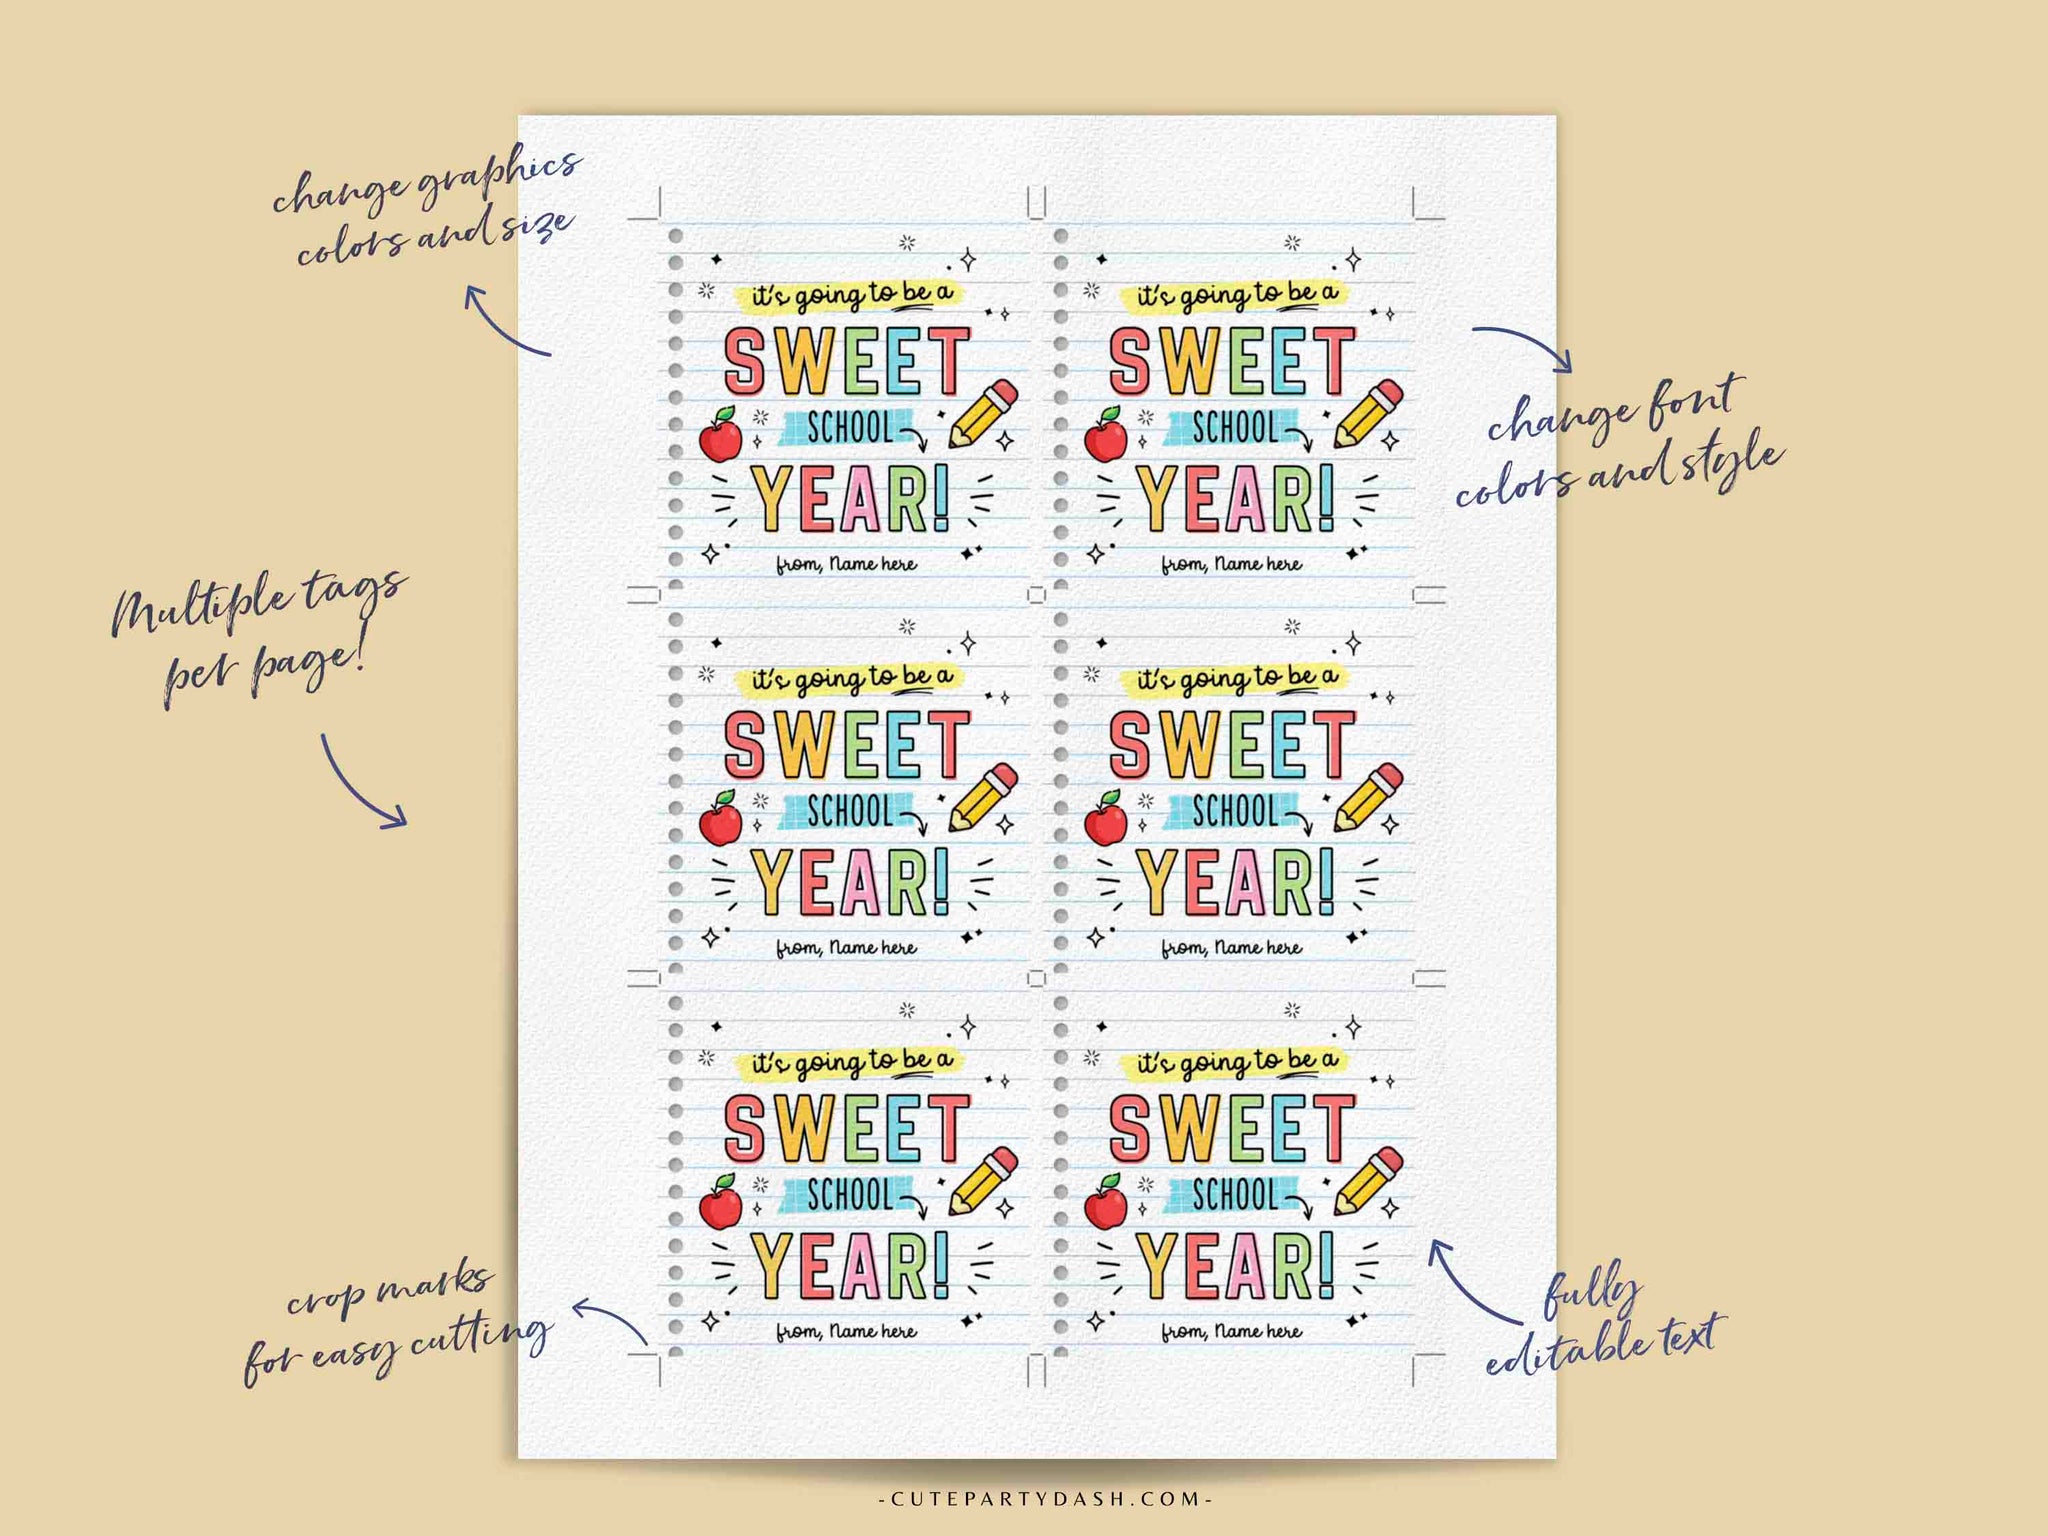 change graphics
colors and size
change font
colors and style
Multiple tags
per page!
crop marks
for easy cutting
fully
editable text
it's going to be a
SWEET
SCHOOL
YEAR!
from, Name here
it's going to be a
SWEET
SCHOOL
YEAR!
from, Name here
it's going to be a
SWEET
SCHOOL
YEAR!
from, Name here
it's going to be a
SWEET
SCHOOL
YEAR!
from, Name here
it's going to be a
SWEET
SCHOOL
YEAR!
from, Name here
it's going to be a
SWEET
SCHOOL
YEAR!
from, Name here
-CUTEPARTYDASH.COM-